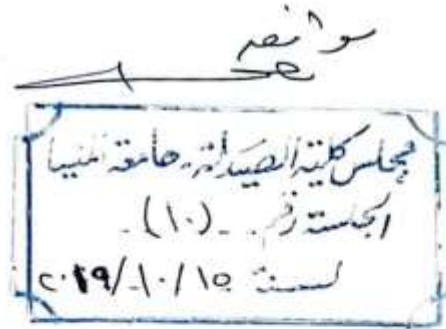 موافقه
مجلس كلية الصيدلة - جامعة المنيا
الجلسة رقم .. (١٠) -
لسنة ١٥/١٠/٢٠١٩